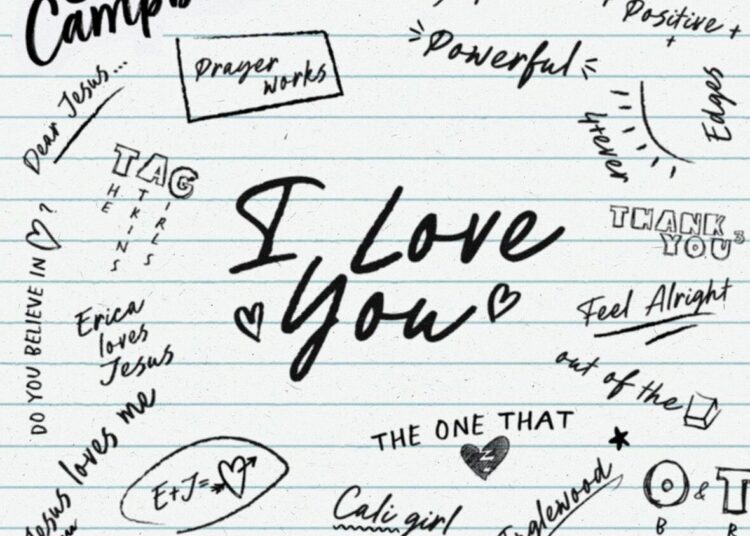 Campb
Positive +
+
Powerful
Prayer
works
Dear Jesus...
Edges
4+ever
TAG
HE
TKINS
IRLS
I Love
You
THANK
YOU³
DO YOU BELIEVE IN ♡?
Feel Alright
Erica
loves
Jesus
out of the
Jesus loves me
THE ONE THAT
E+J=♡
Cali girl
Inglewood
O & T
B R